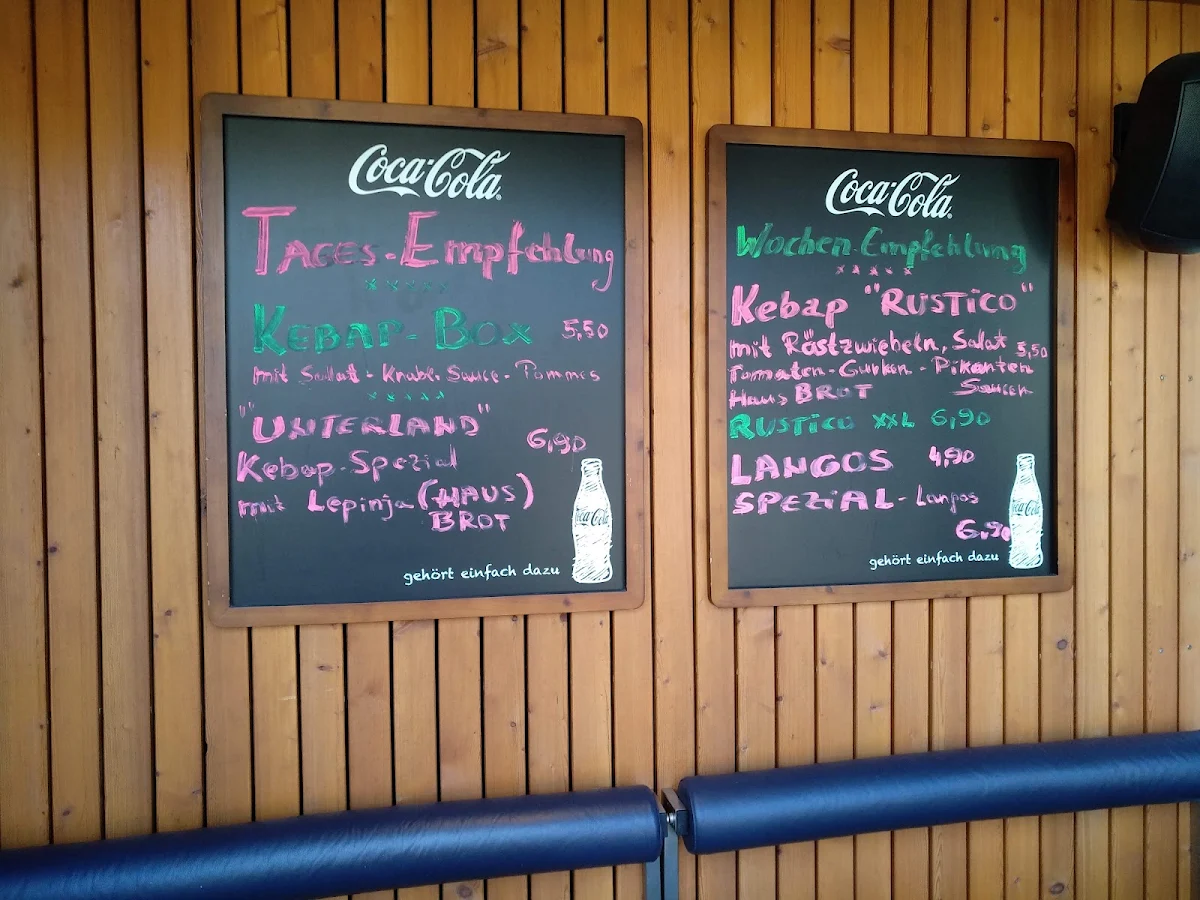 Coca-Cola
TAGES-Empfehlung
xxxxx
KEBAP-BOX 5,50
mit Salat - Knobl. Sauce - Pommes
xxxxx
"UNTERLAND"
6,90
Kebap-Spezial
mit Lepinja (HAUS)
BROT
Coca-Cola
gehört einfach dazu
Coca-Cola
Wochen-Empfehlung
xxxxx
Kebap "RUSTiCO"
mit Röstzwiebeln, Salat 5,50
Tomaten-Gurken-Pikanten
Haus BROT Saucen
RUSTiCO XXL 6,90
LANGOS 4,90
SPEZiAL-Langos
6,90
Coca-Cola
gehört einfach dazu